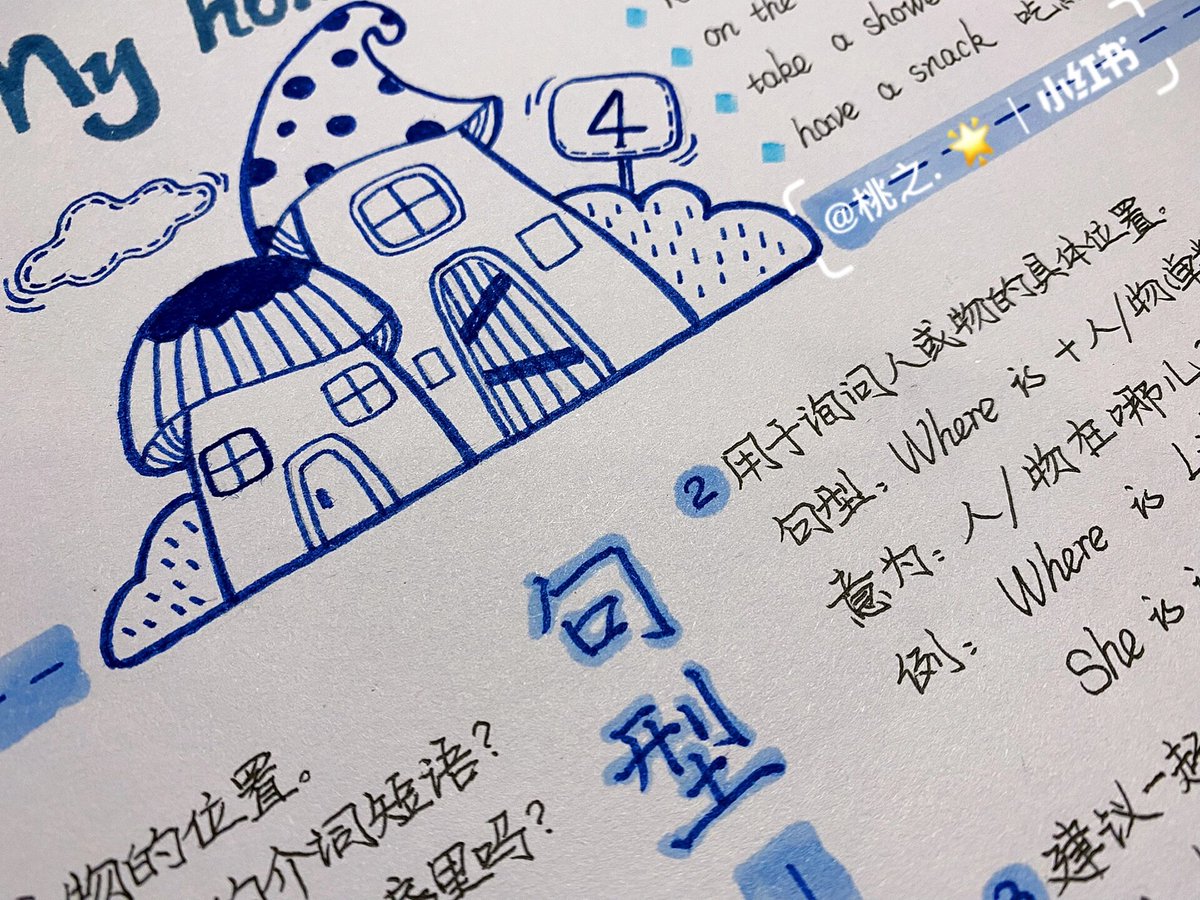 My
4
on the
take a shower
have a snack 吃
@桃之. 🌟 | 小红书
② 用于询问人或物的具体位置。
句型: Where is + 人/物
意为: 人/物在哪儿
例: Where is
She is
句型
③ 建议一起
物的位置。
介词短语?
里吗?